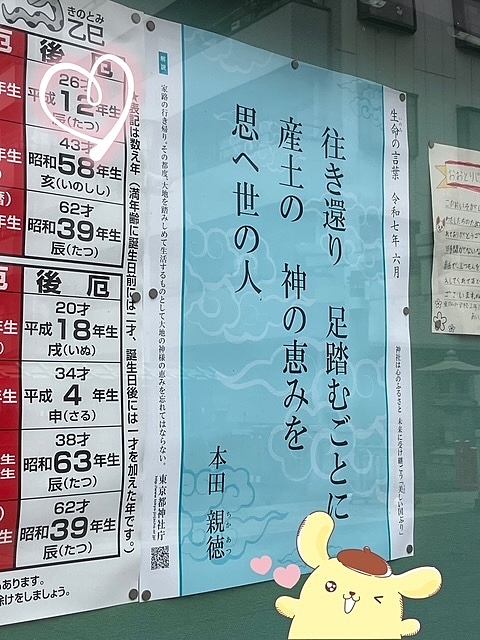 きのとみ
乙巳
厄
後厄
26才
平成12年生
辰(たつ)
43才
昭和58年生
亥(いのしし)
62才
昭和39年生
辰(たつ)
厄
後厄
20才
平成18年生
戌(いぬ)
34才
平成4年生
申(さる)
38才
昭和63年生
辰(たつ)
62才
昭和39年生
辰(たつ)
もあります。
除けをしましょう。
★表記は数え年(満年齢に誕生日前には二才、誕生日後には一才を加えた年です。
生命の言葉 令和七年 六月
往き還り 足踏むごとに
産土の 神の恵みを
思へ世の人
本田 親徳
ちかあつ
解説
家路の行き帰り、その都度、大地を踏みしめて生活するものとして大地の神様の恵みを忘れてはならない。
東京都神社庁
神社は心のふるさと 未来に受け継ごう「美しい国ぶり」